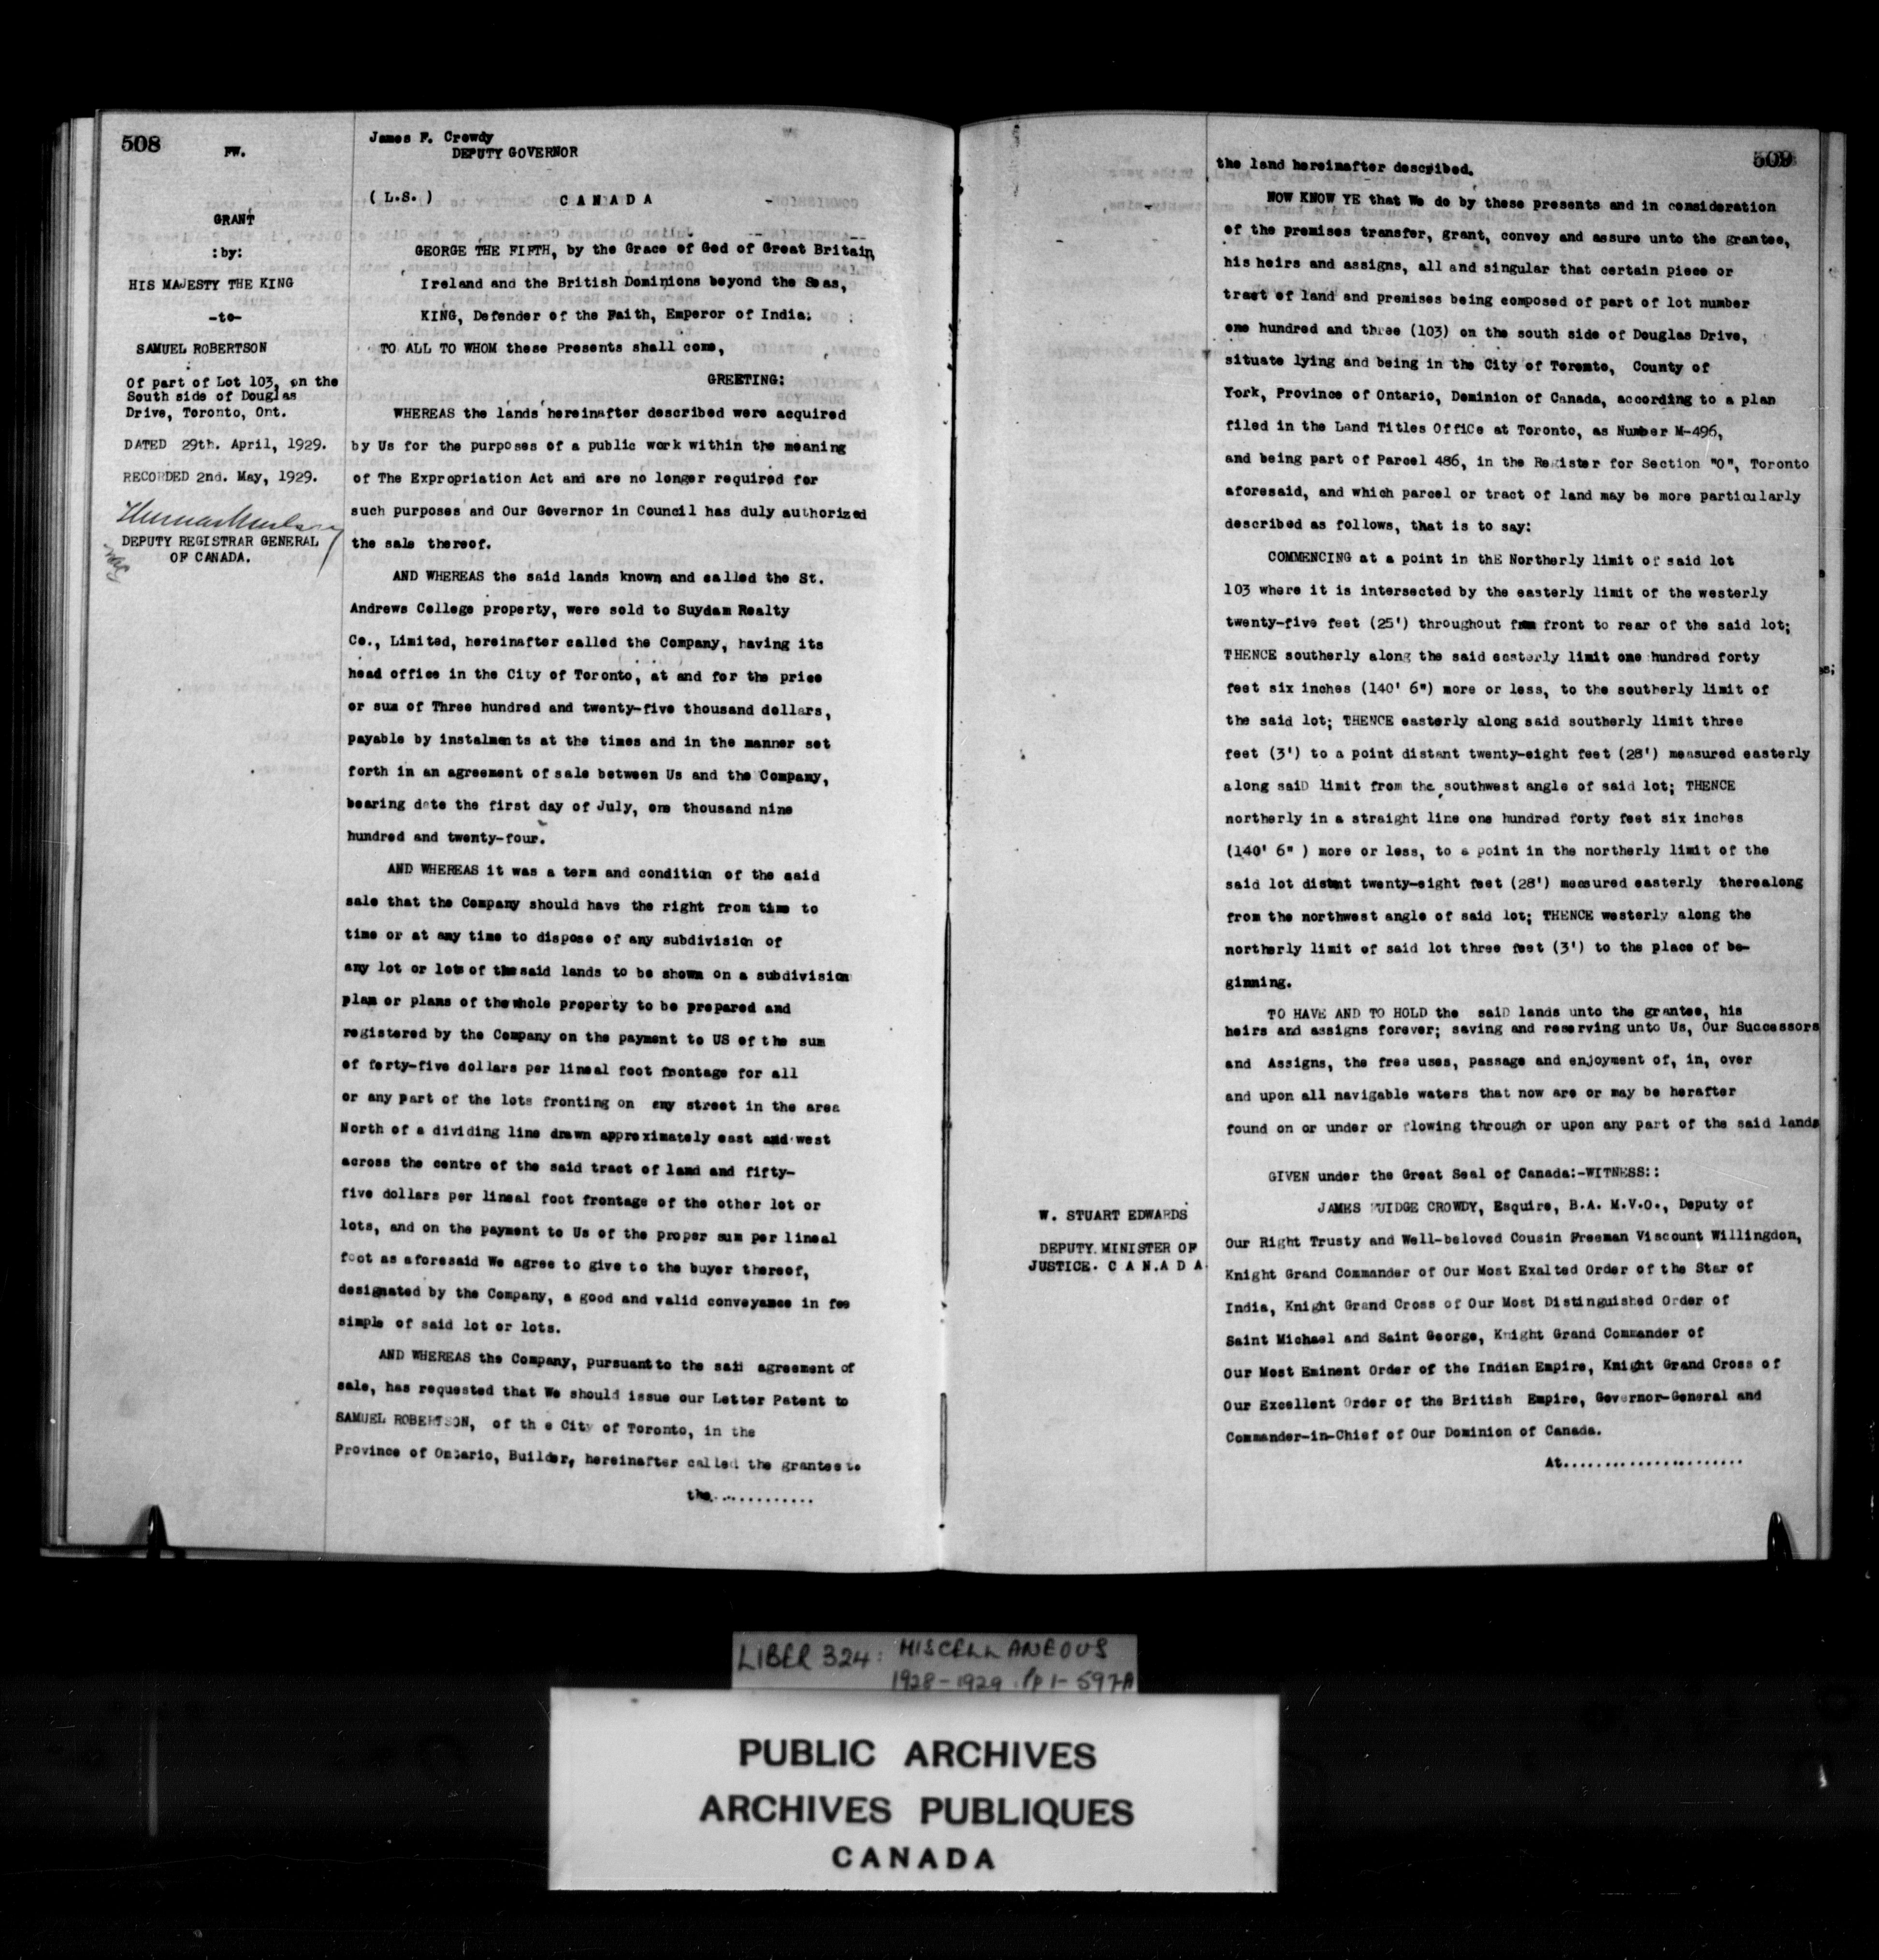 508
FW.
GRANT
:by:
HIS MAJESTY THE KING
-to-
SAMUEL ROBERTSON
:
Of part of Lot 103, on the
South side of Douglas
Drive, Toronto, Ont.
DATED 29th. April, 1929.
RECORDED 2nd. May, 1929.
DEPUTY REGISTRAR GENERAL
OF CANADA.
James F. Crowdy
DEPUTY GOVERNOR
(L.S.) C A N A D A
GEORGE THE FIFTH, by the Grace of God of Great Britain,
Ireland and the British Dominions beyond the Seas,
KING, Defender of the Faith, Emperor of India:
TO ALL TO WHOM these Presents shall come,
GREETING:
WHEREAS the lands hereinafter described were acquired
by Us for the purposes of a public work within the meaning
of The Expropriation Act and are no longer required for
such purposes and Our Governor in Council has duly authorized
the sale thereof.
AND WHEREAS the said lands known and called the St.
Andrews College property, were sold to Suydam Realty
Co., Limited, hereinafter called the Company, having its
head office in the City of Toronto, at and for the price
or sum of Three hundred and twenty-five thousand dollars,
payable by instalments at the times and in the manner set
forth in an agreement of sale between Us and the Company,
bearing date the first day of July, one thousand nine
hundred and twenty-four.
AND WHEREAS it was a term and condition of the said
sale that the Company should have the right from time to
time or at any time to dispose of any subdivision of
any lot or lots of the said lands to be shown on a subdivision
plan or plans of the whole property to be prepared and
registered by the Company on the payment to US of the sum
of forty-five dollars per lineal foot frontage for all
or any part of the lots fronting on any street in the area
North of a dividing line drawn approximately east and west
across the centre of the said tract of land and fifty-
five dollars per lineal foot frontage of the other lot or
lots, and on the payment to Us of the proper sum per lineal
foot as aforesaid We agree to give to the buyer thereof,
designated by the Company, a good and valid conveyance in fee
simple of said lot or lots.
AND WHEREAS the Company, pursuant to the said agreement of
sale, has requested that We should issue our Letter Patent to
SAMUEL ROBERTSON, of th e City of Toronto, in the
Province of Ontario, Builder, hereinafter called the grantee to
the.............
509
the land hereinafter described.
NOW KNOW YE that We do by these presents and in consideration
of the premises transfer, grant, convey and assure unto the grantee,
his heirs and assigns, all and singular that certain piece or
tract of land and premises being composed of part of lot number
one hundred and three (103) on the south side of Douglas Drive,
situate lying and being in the City of Toronto, County of
York, Province of Ontario, Dominion of Canada, according to a plan
filed in the Land Titles Office at Toronto, as Number M-496,
and being part of Parcel 486, in the Register for Section "O", Toronto
aforesaid, and which parcel or tract of land may be more particularly
described as follows, that is to say:
COMMENCING at a point in thE Northerly limit of said lot
103 where it is intersected by the easterly limit of the westerly
twenty-five feet (25') throughout from front to rear of the said lot;
THENCE southerly along the said easterly limit one hundred forty
feet six inches (140' 6") more or less, to the southerly limit of
the said lot; THENCE easterly along said southerly limit three
feet (3') to a point distant twenty-eight feet (28') measured easterly
along saiD limit from the southwest angle of said lot; THENCE
northerly in a straight line one hundred forty feet six inches
(140' 6" ) more or less, to a point in the northerly limit of the
said lot distant twenty-eight feet (28') measured easterly therealong
from the northwest angle of said lot; THENCE westerly along the
northerly limit of said lot three feet (3') to the place of be-
ginning.
TO HAVE AND TO HOLD the saiD lands unto the grantee, his
heirs and assigns forever; saving and reserving unto Us, Our Successors
and Assigns, the free uses, passage and enjoyment of, in, over
and upon all navigable waters that now are or may be herafter
found on or under or flowing through or upon any part of the said lands
GIVEN under the Great Seal of Canada:-WITNESS::
JAMES FUIDGE CROWDY, Esquire, B.A. M.V.O., Deputy of
Our Right Trusty and Well-beloved Cousin Freeman Viscount Willingdon,
Knight Grand Commander of Our Most Exalted Order of the Star of
India, Knight Grand Cross of Our Most Distinguished Order of
Saint Michael and Saint George, Knight Grand Commander of
Our Most Eminent Order of the Indian Empire, Knight Grand Cross of
Our Excellent Order of the British Empire, Governor-General and
Commander-in-Chief of Our Dominion of Canada.
At......................
W. STUART EDWARDS
DEPUTY MINISTER OF
JUSTICE. C A N A D A
LIBER 324: MISCELLANEOUS
1928-1929 pp 1-597A
PUBLIC ARCHIVES
ARCHIVES PUBLIQUES
CANADA